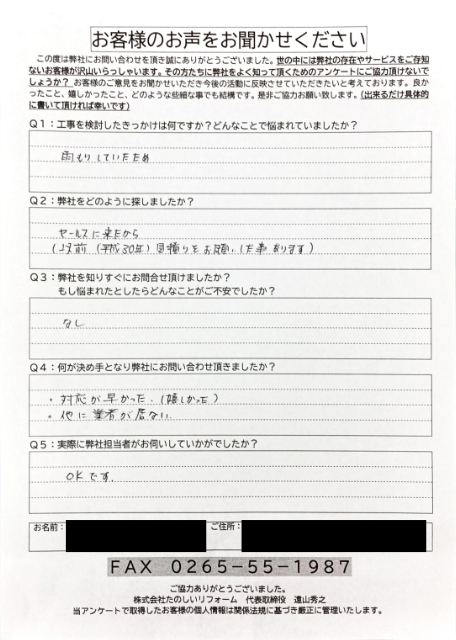 お客様のお声をお聞かせください
この度は弊社にお問い合わせを頂き誠にありがとうございました。世の中には弊社の存在やサービスをご存知
ないお客様が沢山いらっしゃいます。その方たちに弊社をよく知って頂くためのアンケートにご協力頂けないで
しょうか？ お客様のご意見をお聞かせいただき今後の活動に反映させていただきたいと考えております。良か
ったこと、嬉しかったこと、どのような些細な事でも結構です。是非ご協力お願い致します。(出来るだけ具体的
に書いて頂ければ幸いです)
Q1：工事を検討したきっかけは何ですか？どんなことで悩まれていましたか？
雨もりしていたため
Q2：弊社をどのように探しましたか？
セールスに来たから
(以前(平成30年)見積りをお願いした事あります)
Q3：弊社を知りすぐにお問合せ頂けましたか？
もし悩まれたとしたらどんなことがご不安でしたか？
なし
Q4：何が決め手となり弊社にお問い合わせ頂きましたか？
・対応が早かった.(嬉しかった)
・他に業者が居ない.
Q5：実際に弊社担当者がお伺いしていかがでしたか？
OKです.
お名前： ご住所：
FAX 0265-55-1987
ご協力ありがとうございました。
株式会社たのしいリフォーム 代表取締役 遠山秀之
当アンケートで取得したお客様の個人情報は関係法規に基づき厳正に管理いたします。